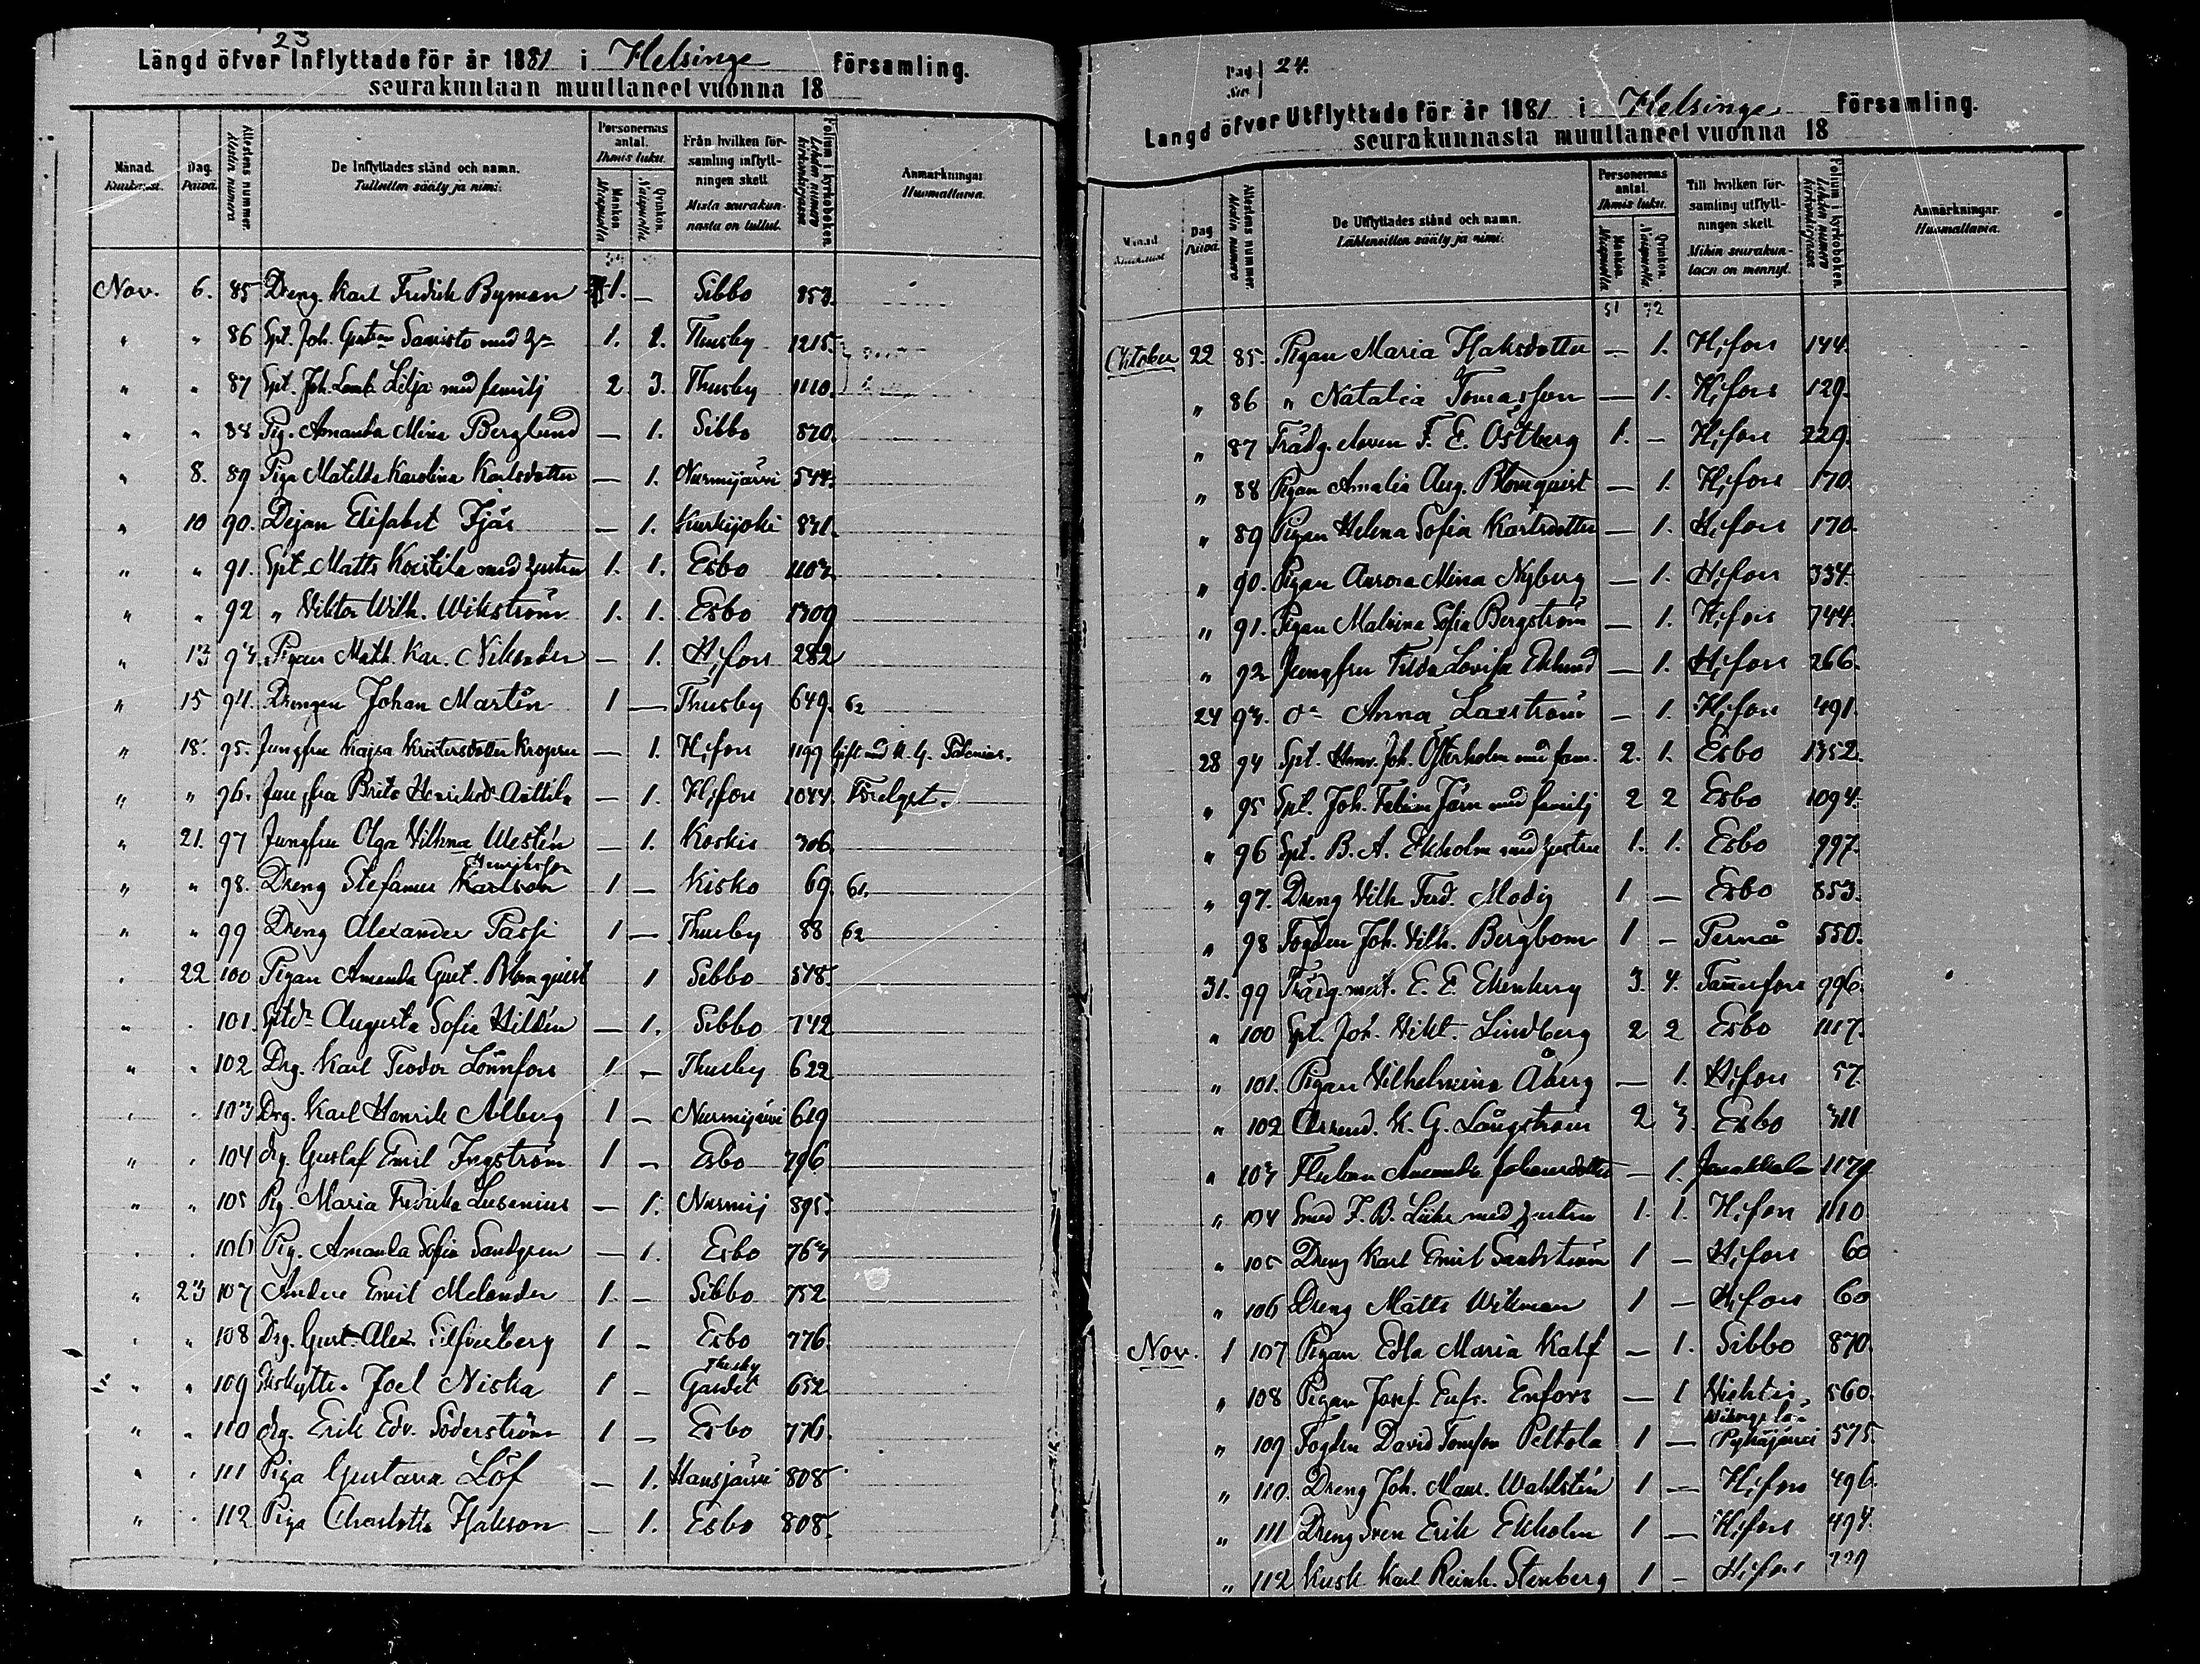 23
Längd öfver Inflyttade för år 1881 i Helsinge församling.
seurakuntaan muuttaneet vuonna 18
Månad. Dag. Attestens nummer. De Inflyttades stånd och namn. Personernas antal. Från hvilken församling inflyttningen skett Folium i kyrkoboken. Anmärkningar
Kuukausi. Päivä. Attestin numero Tulleitten sääty ja nimi. Ihmis luku. Mankön. Miespuolia Qvinkön. Vaimopuolia Mista seurakunnasta on tullut. Lehden numero kirkonkirjassa Huomattavia.
Nov. 6. 85 Dreng. Karl Fredrik Byman 1. — Sibbo 853.
" " 86 Spt. Joh. Gust:n Samisto med h:u 1. 1. Thusby 1215.
" " 87 Spt. Joh. Lilja med familj 2 3. Thusby 1110.
" " 88 Pig. Amanda Mina Berglund — 1. Sibbo 870.
" 8. 89 Piga Matilda Karolina Karlsdotter — 1. Nurmijärvi 544.
" 10 90. Dejan Elisabet Fjäs — 1. Kurkijoki 831.
" " 91. Spt. Matts Koistila med hustru 1. 1. Esbo 1107
" " 92 " Viktor Wilh. Wikström 1. 1. Esbo 1309
" 13 93. Pigan Math. Kar. Nikander — 1. H:fors 282
" 15 94. Drengen Johan Martin 1 — Thusby 649. 62
" 18. 95. Jungfru Kajsa Kristersdotter — 1. H:fors 1199 Gift med K. G.
" " 96. Jungfru Brita Henriksd. Anttila — 1. H:fors 1044.
" 21. 97 Jungfru Olga Vilhma Westén — 1. Koskis 306.
Henriksson
" " 98. Dreng Stefanus Karlsson 1 — Kisko 69. 61.
" " 99 Dreng Alexander Passi 1 — Thusby 88 62
" 22 100 Pigan Amanda Gust. Blomquist 1 Sibbo 548.
" " 101. Augusta Sofia Hildén — 1. Sibbo 742
" " 102 Drg. Karl Teodor Lönnfors 1 — Thusby 622
" " 103 Drg. Karl Henrik Ahlberg 1 — Nurmijärvi 619
" " 104 drg. Gustaf Emil Ingström 1 — Esbo 796
" " 105 Pig. Maria Fredrika Lusenius — 1. Nurmij 895.
" " 106 Pig. Amanda Sofia Sandgren — 1. Esbo 763
" 23 107 Anders Emil Melander 1 — Sibbo 752
" " 108 Drg. Gust. Alex Silfverberg 1 — Esbo 776.
Thusby
" " 109 Joel Niska 1 — Gardet 652
" " 110 drg. Erik Edv. Söderström 1 — Esbo 776.
" " 111 Piga Gustava Löf — 1. Hausjärvi 808.
" " 112 Piga Charlotta Isakson — 1. Esbo 808.
Pag 24.
Siv.
Längd öfver Utflyttade för år 1881 i Helsinge församling.
seurakunnasta muuttaneet vuonna 18
Månad Dag Attestens nummer. De Utflyttades stånd och namn. Personernas antal. Till hvilken församling utflyttningen skett. Folium i kyrkoboken. Anmärkningar.
Kuukausi Päivä Attestin numero Lähteneitten sääty ja nimi. Ihmis luku. Mankön. Miespuolia Qvinkön. Vaimopuolia Mihin seurakuntaan on mennyt. Lehden numero kirkonkirjassa Huomattavia.
51 72
Oktober 22 85. Pigan Maria Isaksdotter — 1. H:fors 144.
" 86 " Natalia Tomasson — 1. H:fors 129.
" 87 Trädg. eleven F. E. Östberg 1. — H:fors 229.
" 88 Pigan Amalia Aug. Blomquist — 1. H:fors 170.
" 89 Pigan Helena Sofia Karlsdotter — 1. H:fors 170.
" 90. Pigan Aurora Mina Nyberg — 1. H:fors 334.
" 91. Pigan Malvina Sofia Bergström — 1. H:fors 744.
" 92 Jungfru Fedda Lovisa Eklund — 1. H:fors 266.
24 93. d:o Anna Laxström — 1. H:fors 491.
28 94 Spt. Henr. Joh. Österholm med fam. 2. 1. Esbo 1352.
" 95 Spt. Joh. Fabian Järn med familj 2 2 Esbo 1094.
" 96 Spt. B. A. Ekholm med hustru 1. 1. Esbo 997.
" 97. Dreng Vilh Ferd. Modig 1 — Esbo 853.
" 98 Fogden Joh. Vilh. Bergbom 1 — Pernå 550.
31. 99 Trädg. mest. E. E. Ekenberg 3. 4. Tammerfors 996.
" 100 Spt. Joh. Vikt. Lindberg 2 2 Esbo 1117.
" 101. Pigan Vilhelmina Åberg — 1. H:fors 57.
" 102 Arrend. K. G. Långström 2 3 Esbo 311
" 103 Amanda Johansdotter — 1. Janakkala 1179
" 104 Smed F. B. Lüke med hustru 1. 1. H:fors 1110
" 105 Dreng Karl Emil Sandström 1 — H:fors 60
" 106 Dreng Matts Wikman 1 — H:fors 60
Nov. 1 107 Pigan Edla Maria Kalf — 1. Sibbo 870.
" 108 Pigan Josef. Eufr. Enfors — 1 Vichtis 560.
Wiborgs län
" 109 Fogden David Tomsson Peltola 1 — Pyhäjärvi 575.
" 110. Dreng Joh. Maur. Wahlstén 1 — H:fors 496.
" 111 Dreng Sven Erik Ekholm 1 — H:fors 494.
" 112 Kusk Karl Reinh. Stenberg 1 — H:fors